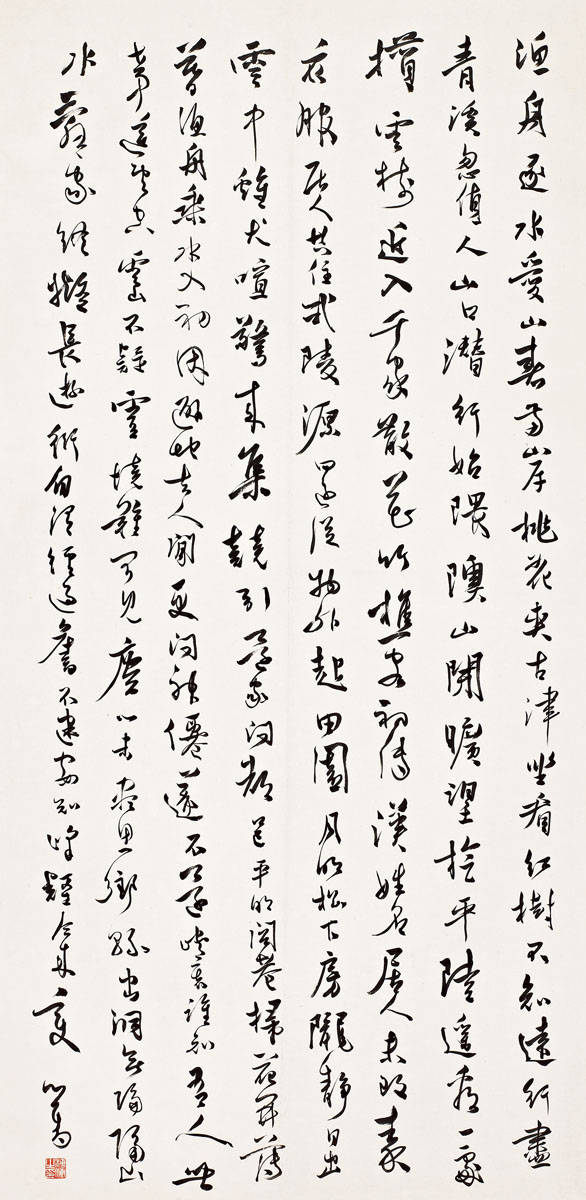 漁舟逐水愛山春兩岸桃花夾古津坐看紅樹不知遠行盡
青溪忽値人山口潛行始隈隩山開曠望旋平陸遥看一處
攢雲樹近入千家散花竹樵客初傳漢姓名居人未改秦
衣服居人共住武陵源還從物外起田園月明松下房櫳靜日出
雲中雞犬喧驚來集競引還家問都邑平明閭巷掃花開薄
暮漁舟乘水入初因避地去人間更問神僊遂不還峽裏誰知有人世
事遥望空雲山不疑靈境難可見塵心未盡思鄉縣出洞無隔山
水辭家終擬長遊衍自謂經過舊不迷安知峰壑今來變 心畬